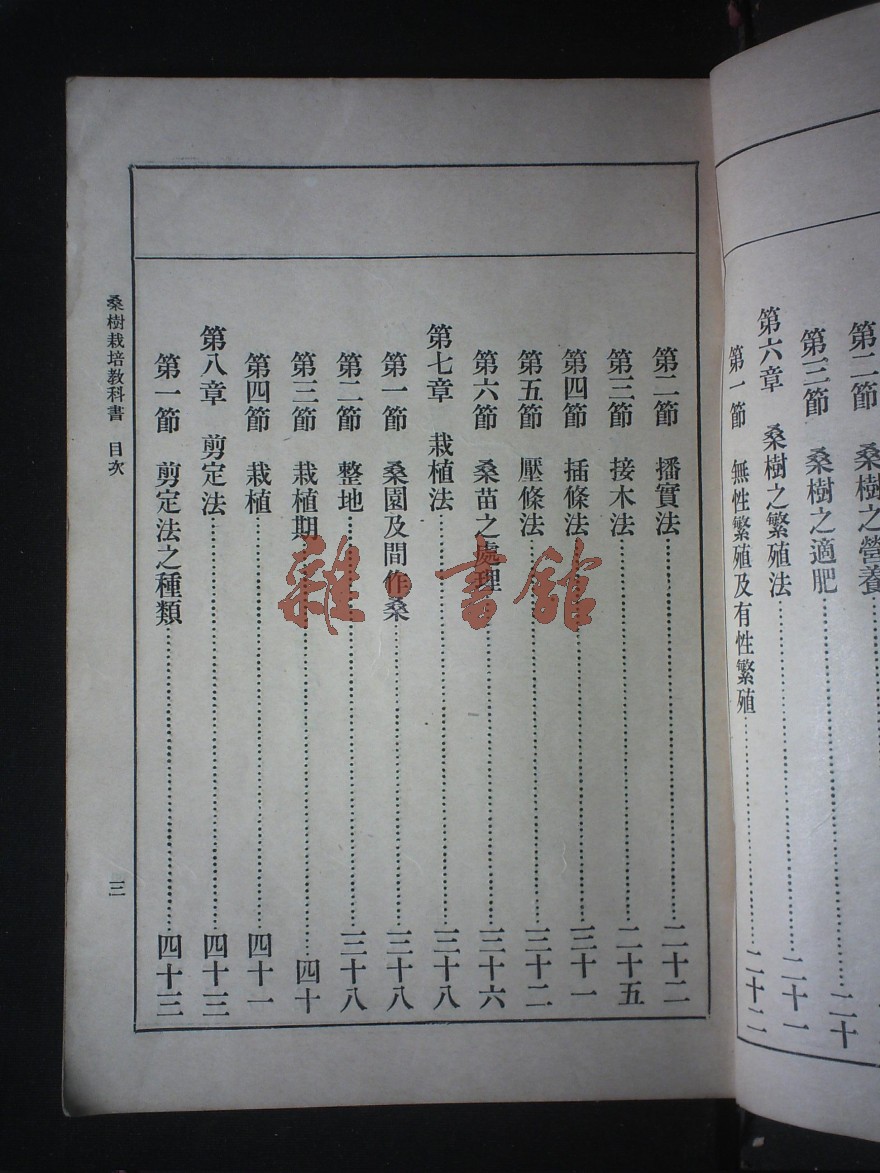 第二節 桑樹之營養
第三節 桑樹之適肥……二十
第六章 桑樹之繁殖法……二十一
第一節 無性繁殖及有性繁殖……二十二
第二節 播實法……二十二
第三節 接木法……二十五
第四節 插條法……三十一
第五節 壓條法……三十二
第六節 桑苗之處理……三十六
第七章 栽植法……三十八
第一節 桑園及間作桑……三十八
第二節 整地……三十八
第三節 栽植期……四十
第四節 栽植……四十一
第八章 剪定法……四十三
第一節 剪定法之種類……四十三
桑樹栽培教科書 目次 三
雜·書館